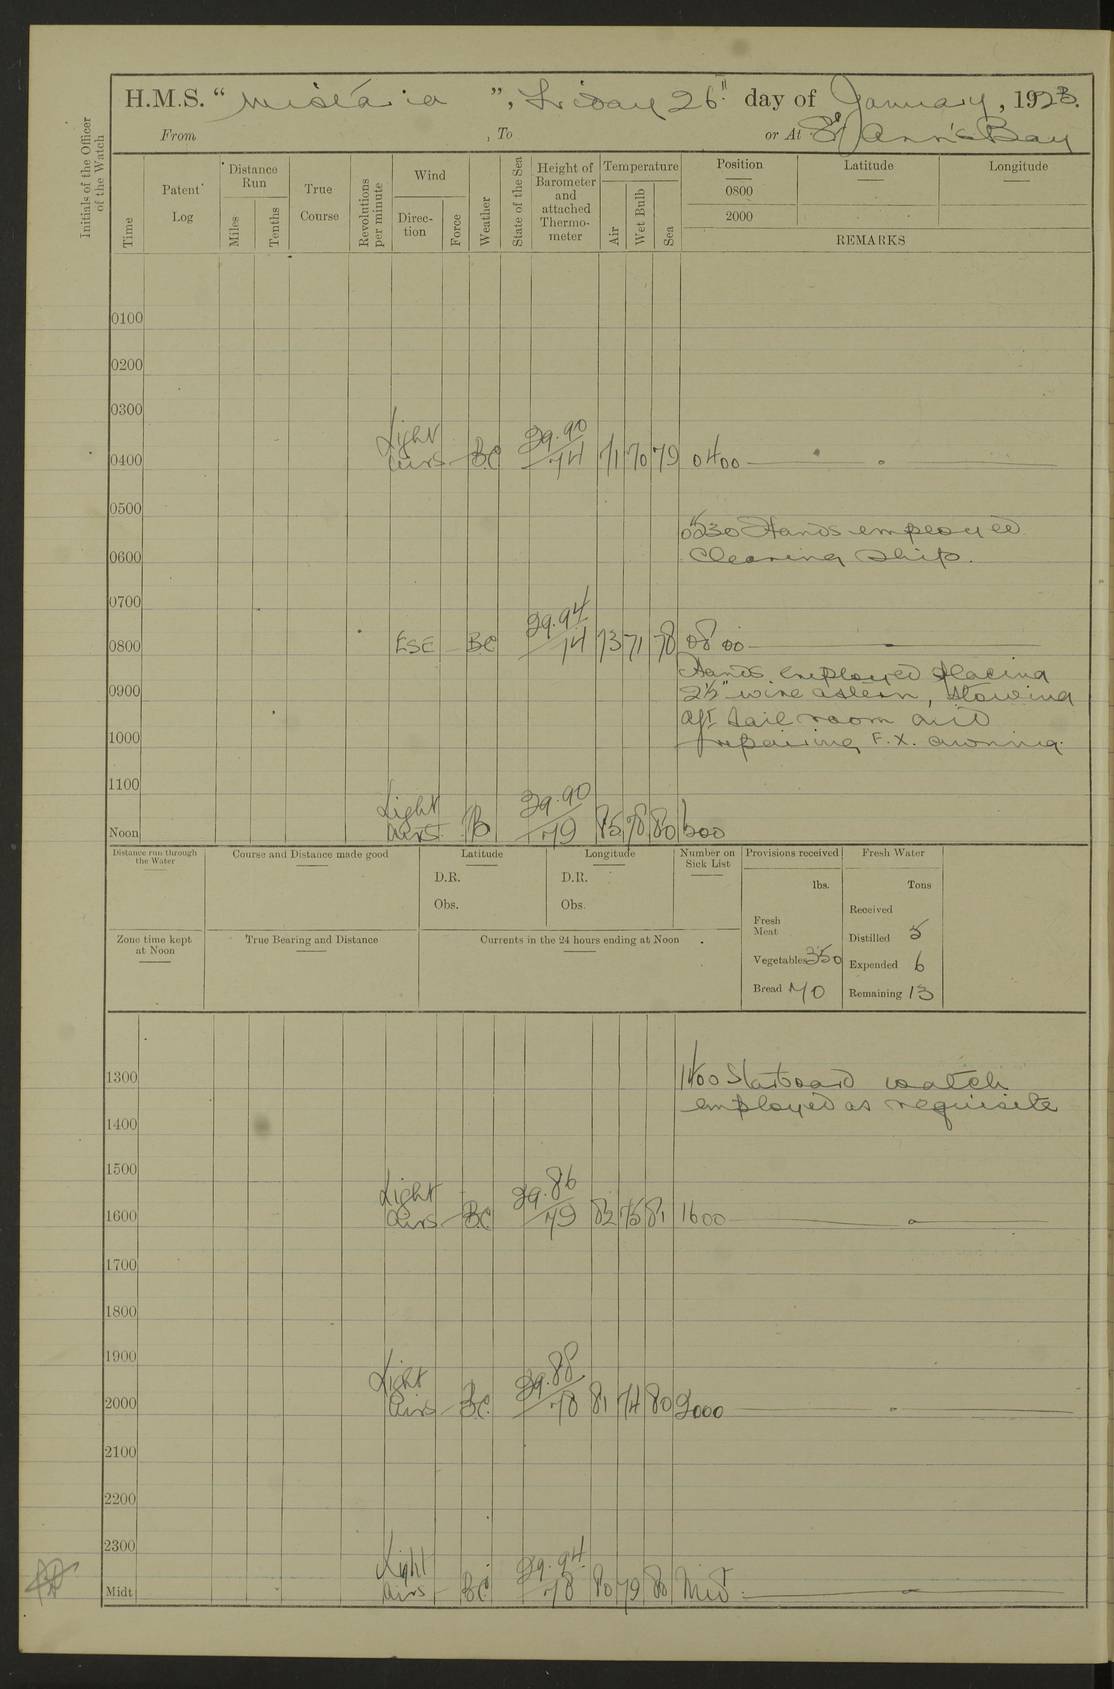 H.M.S. " Wistaria ", Friday 26th day of January, 1923.
From , To or At St Ann's Bay
Initials of the Officer
of the Watch
Time
Patent
Log
Distance
Run
Miles
Tenths
True
Course
Revolutions
per minute
Wind
Direc-
tion
Force
Weather
State of the Sea
Height of
Barometer
and
attached
Thermo-
meter
Temperature
Air
Wet Bulb
Sea
Position Latitude Longitude
0800
2000
REMARKS
0100
0200
0300
Light 29.90
0400 airs — BC 74 71 70 79 0400
0500
0530 Hands employed
0600 Cleaning Ship.
0700
29.94
0800 ESE — BC 74 73 71 78 0800
Hands employed placing
0900 2½" wire astern, stowing
aft sail room and
1000 repairing F.X. awning.
1100
Light 29.90
Noon airs B 79 85 78 80 1200
Distance run through
the Water
Course and Distance made good
Latitude
D.R.
Obs.
Longitude
D.R.
Obs.
Number on
Sick List
Provisions received
lbs.
Fresh
Meat
Vegetables 350
Bread 70
Fresh Water
Tons
Received
Distilled 5
Expended 6
Remaining 13
Zone time kept
at Noon
True Bearing and Distance
Currents in the 24 hours ending at Noon
1300 1400 Starboard watch
employed as requisite
1400
1500
Light 29.86
1600 airs — BC 79 82 75 81 1600
1700
1800
1900
Light 29.88
2000 airs — BC 78 81 74 80 2000
2100
2200
2300
Light 29.94
Midt airs — BC 78 80 79 80 Mid